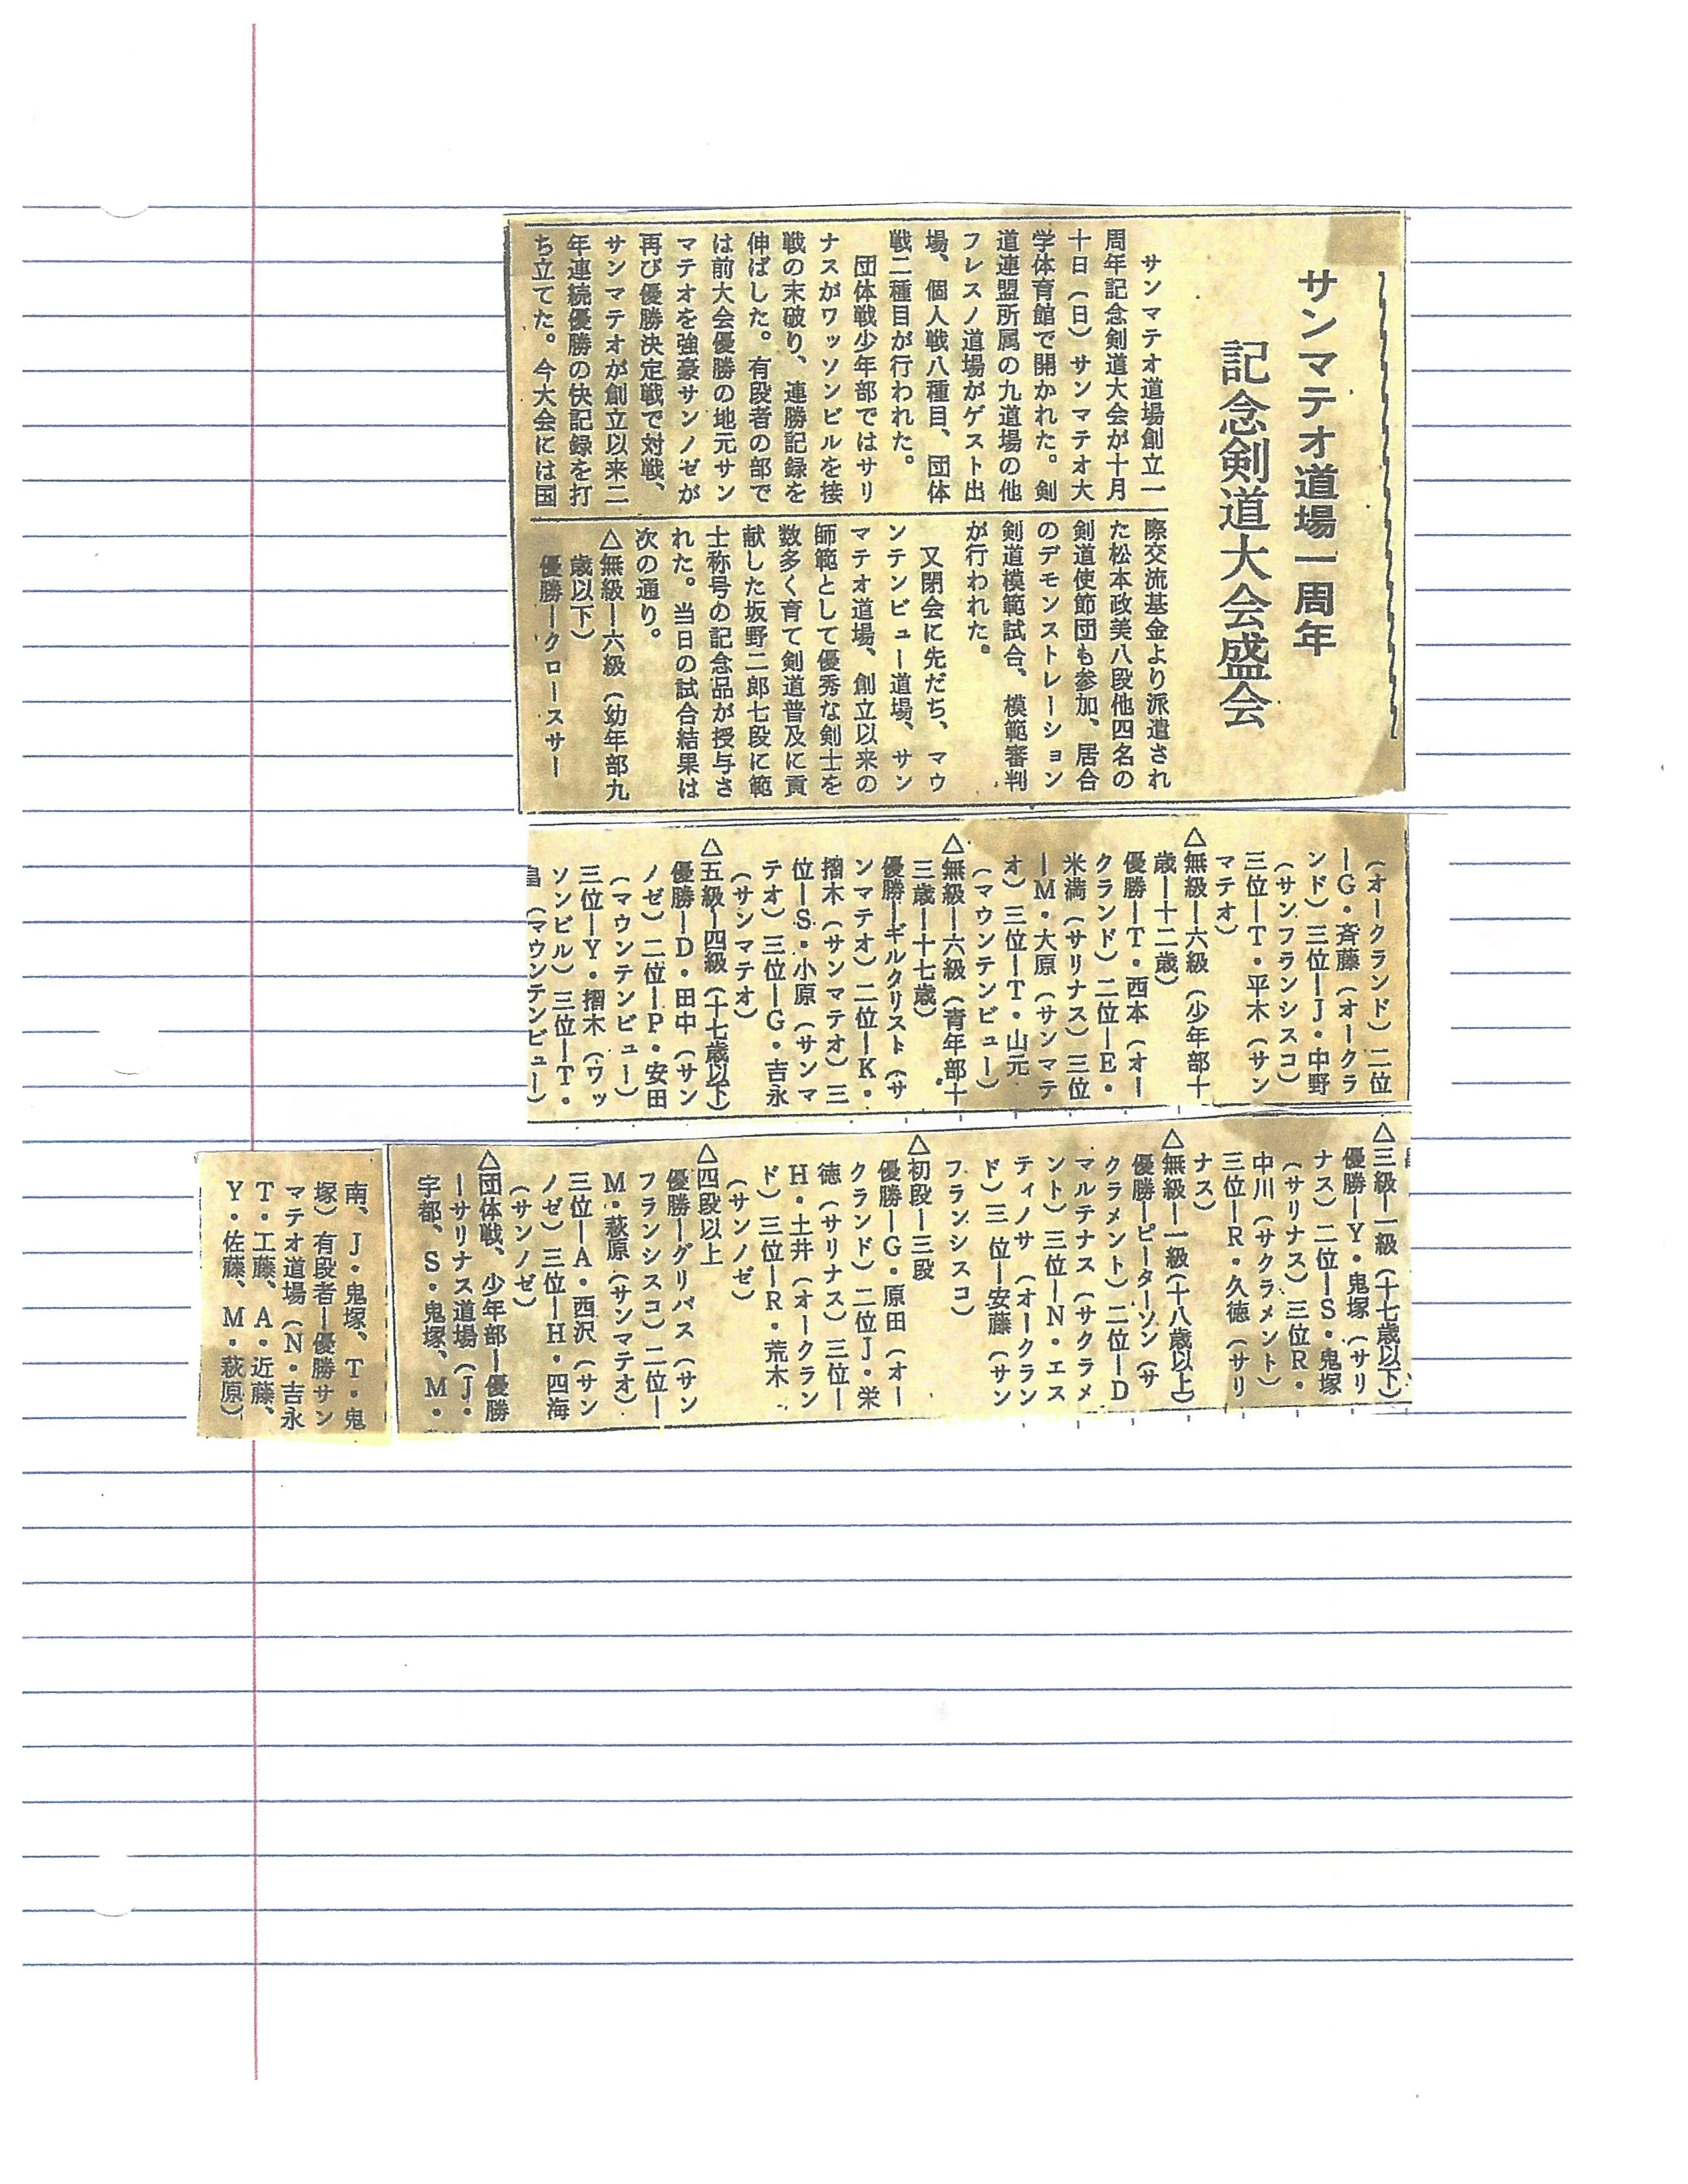 サンマテオ道場一周年
記念剣道大会盛会
サンマテオ道場創立一
周年記念剣道大会が十月
十日(日)サンマテオ大
学体育館で開かれた。剣
道連盟所属の九道場の他
フレスノ道場がゲスト出
場、個人戦八種目、団体
戦二種目が行われた。
団体戦少年部ではサリ
ナスがワッソンビルを接
戦の末破り、連勝記録を
伸ばした。有段者の部で
は前大会優勝の地元サン
マテオを強豪サンノゼが
再び優勝決定戦で対戦、
サンマテオが創立以来二
年連続優勝の快記録を打
ち立てた。今大会には国
際交流基金より派遣され
た松本政美八段他四名の
剣道使節団も参加、居合
のデモンストレーション
剣道模範試合、模範審判
が行われた。
又閉会に先だち、マウ
ンテンビュー道場、サン
マテオ道場、創立以来の
師範として優秀な剣士を
数多く育て剣道普及に貢
献した坂野二郎七段に範
士称号の記念品が授与さ
れた。当日の試合結果は
次の通り。
△無級ー六級(幼年部九
歳以下)
優勝ークロースサー
(オークランド)二位
ーG・斉藤(オークラ
ンド)三位ーJ・中野
(サンフランシスコ)
三位ーT・平木(サン
マテオ)
△無級ー六級(少年部十
歳ー十二歳)
優勝ーT・西本(オー
クランド)二位ーE・
米満(サリナス)三位
ーM・大原(サンマテ
オ)三位ーT・山元
(マウンテンビュー)
△無級ー六級(青年部十
三歳ー十七歳)
優勝ーギルクリスト(サ
ンマテオ)二位ーK・
摺木(サンマテオ)三
位ーS・小原(サンマ
テオ)三位ーG・吉永
(サンマテオ)
△五級ー四級(十七歳以下)
優勝ーD・田中(サン
ノゼ)二位ーP・安田
(マウンテンビュー)
三位ーY・摺木(ワッ
ソンビル)三位ーT・
(マウンテンビュー)
△三級ー一級(十七歳以下)
優勝ーY・鬼塚(サリ
ナス)二位ーS・鬼塚
(サリナス)三位R・
中川(サクラメント)
三位ーR・久徳(サリ
ナス)
△無級ー一級(十八歳以上)
優勝ーピーターソン(サ
クラメント)二位ーD
マルテナス(サクラメ
ント)三位ーN・エス
ティノサ(オークラン
ド)三位ー安藤(サン
フランシスコ)
△初段ー三段
優勝ーG・原田(オー
クランド)二位J・栄
徳(サリナス)三位ー
H・土井(オークラン
ド)三位ーR・荒木
(サンノゼ)
△四段以上
優勝ーグリバス(サン
フランシスコ)二位ー
M・萩原(サンマテオ)
三位ーA・西沢(サン
ノゼ)三位ーH・四海
(サンノゼ)
△団体戦、少年部ー優勝
ーサリナス道場(J・
宇都、S・鬼塚、M・
南、J・鬼塚、T・鬼
塚)有段者ー優勝サン
マテオ道場(N・吉永
T・工藤、A・近藤、
Y・佐藤、M・萩原)